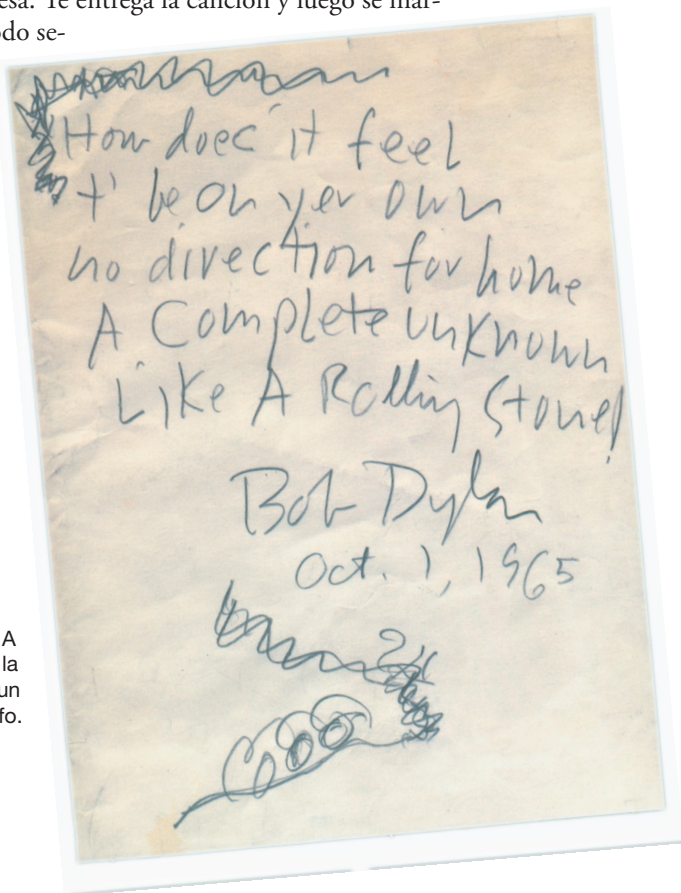 esa. Te entrega la canción y luego se mar-
odo se-
How does it feel
t' be on yer own
no direction for home
A Complete unKnown
Like A Rolling Stone!
Bob Dylan
Oct. 1, 1965
A
la
un
fo.